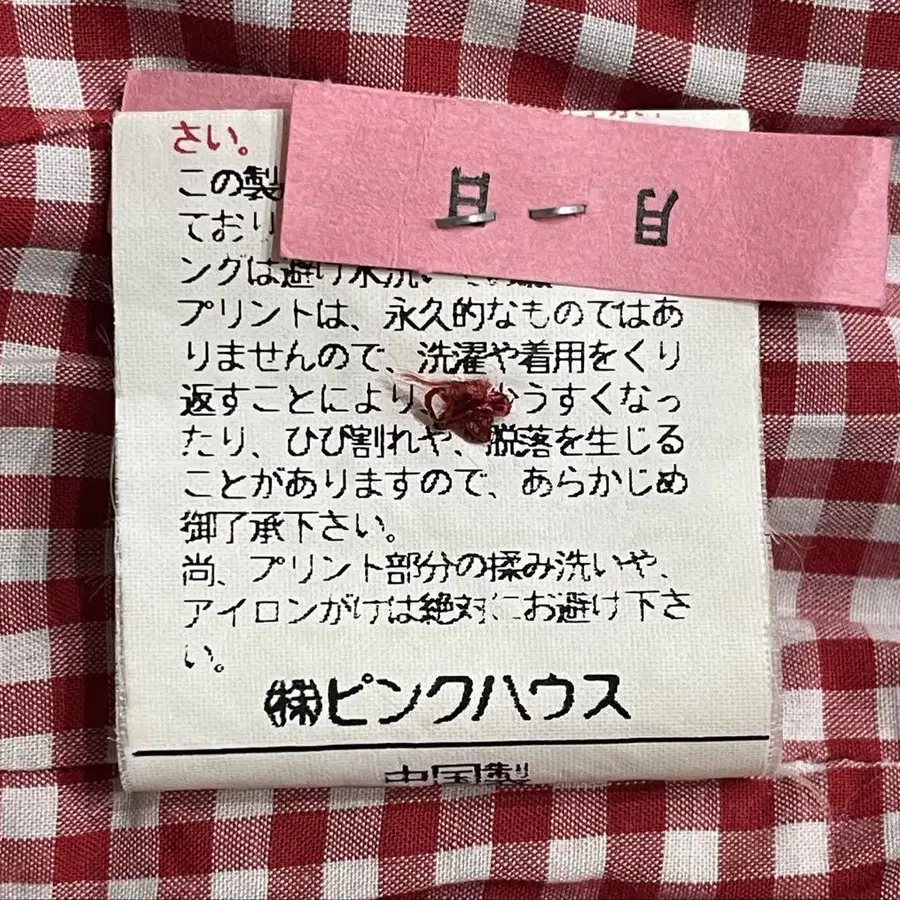 さい。
日 一 月
この製
ており
ングは避け水洗い
プリントは、永久的なものではあ
りませんので、洗濯や着用をくり
返すことにより うすくなっ
たり、ひび割れや、脱落を生じる
ことがありますので、あらかじめ
御了承下さい。
尚、プリント部分の揉み洗いや、
アイロンがけは絶対にお避け下さ
い。
㈱ピンクハウス
中国製